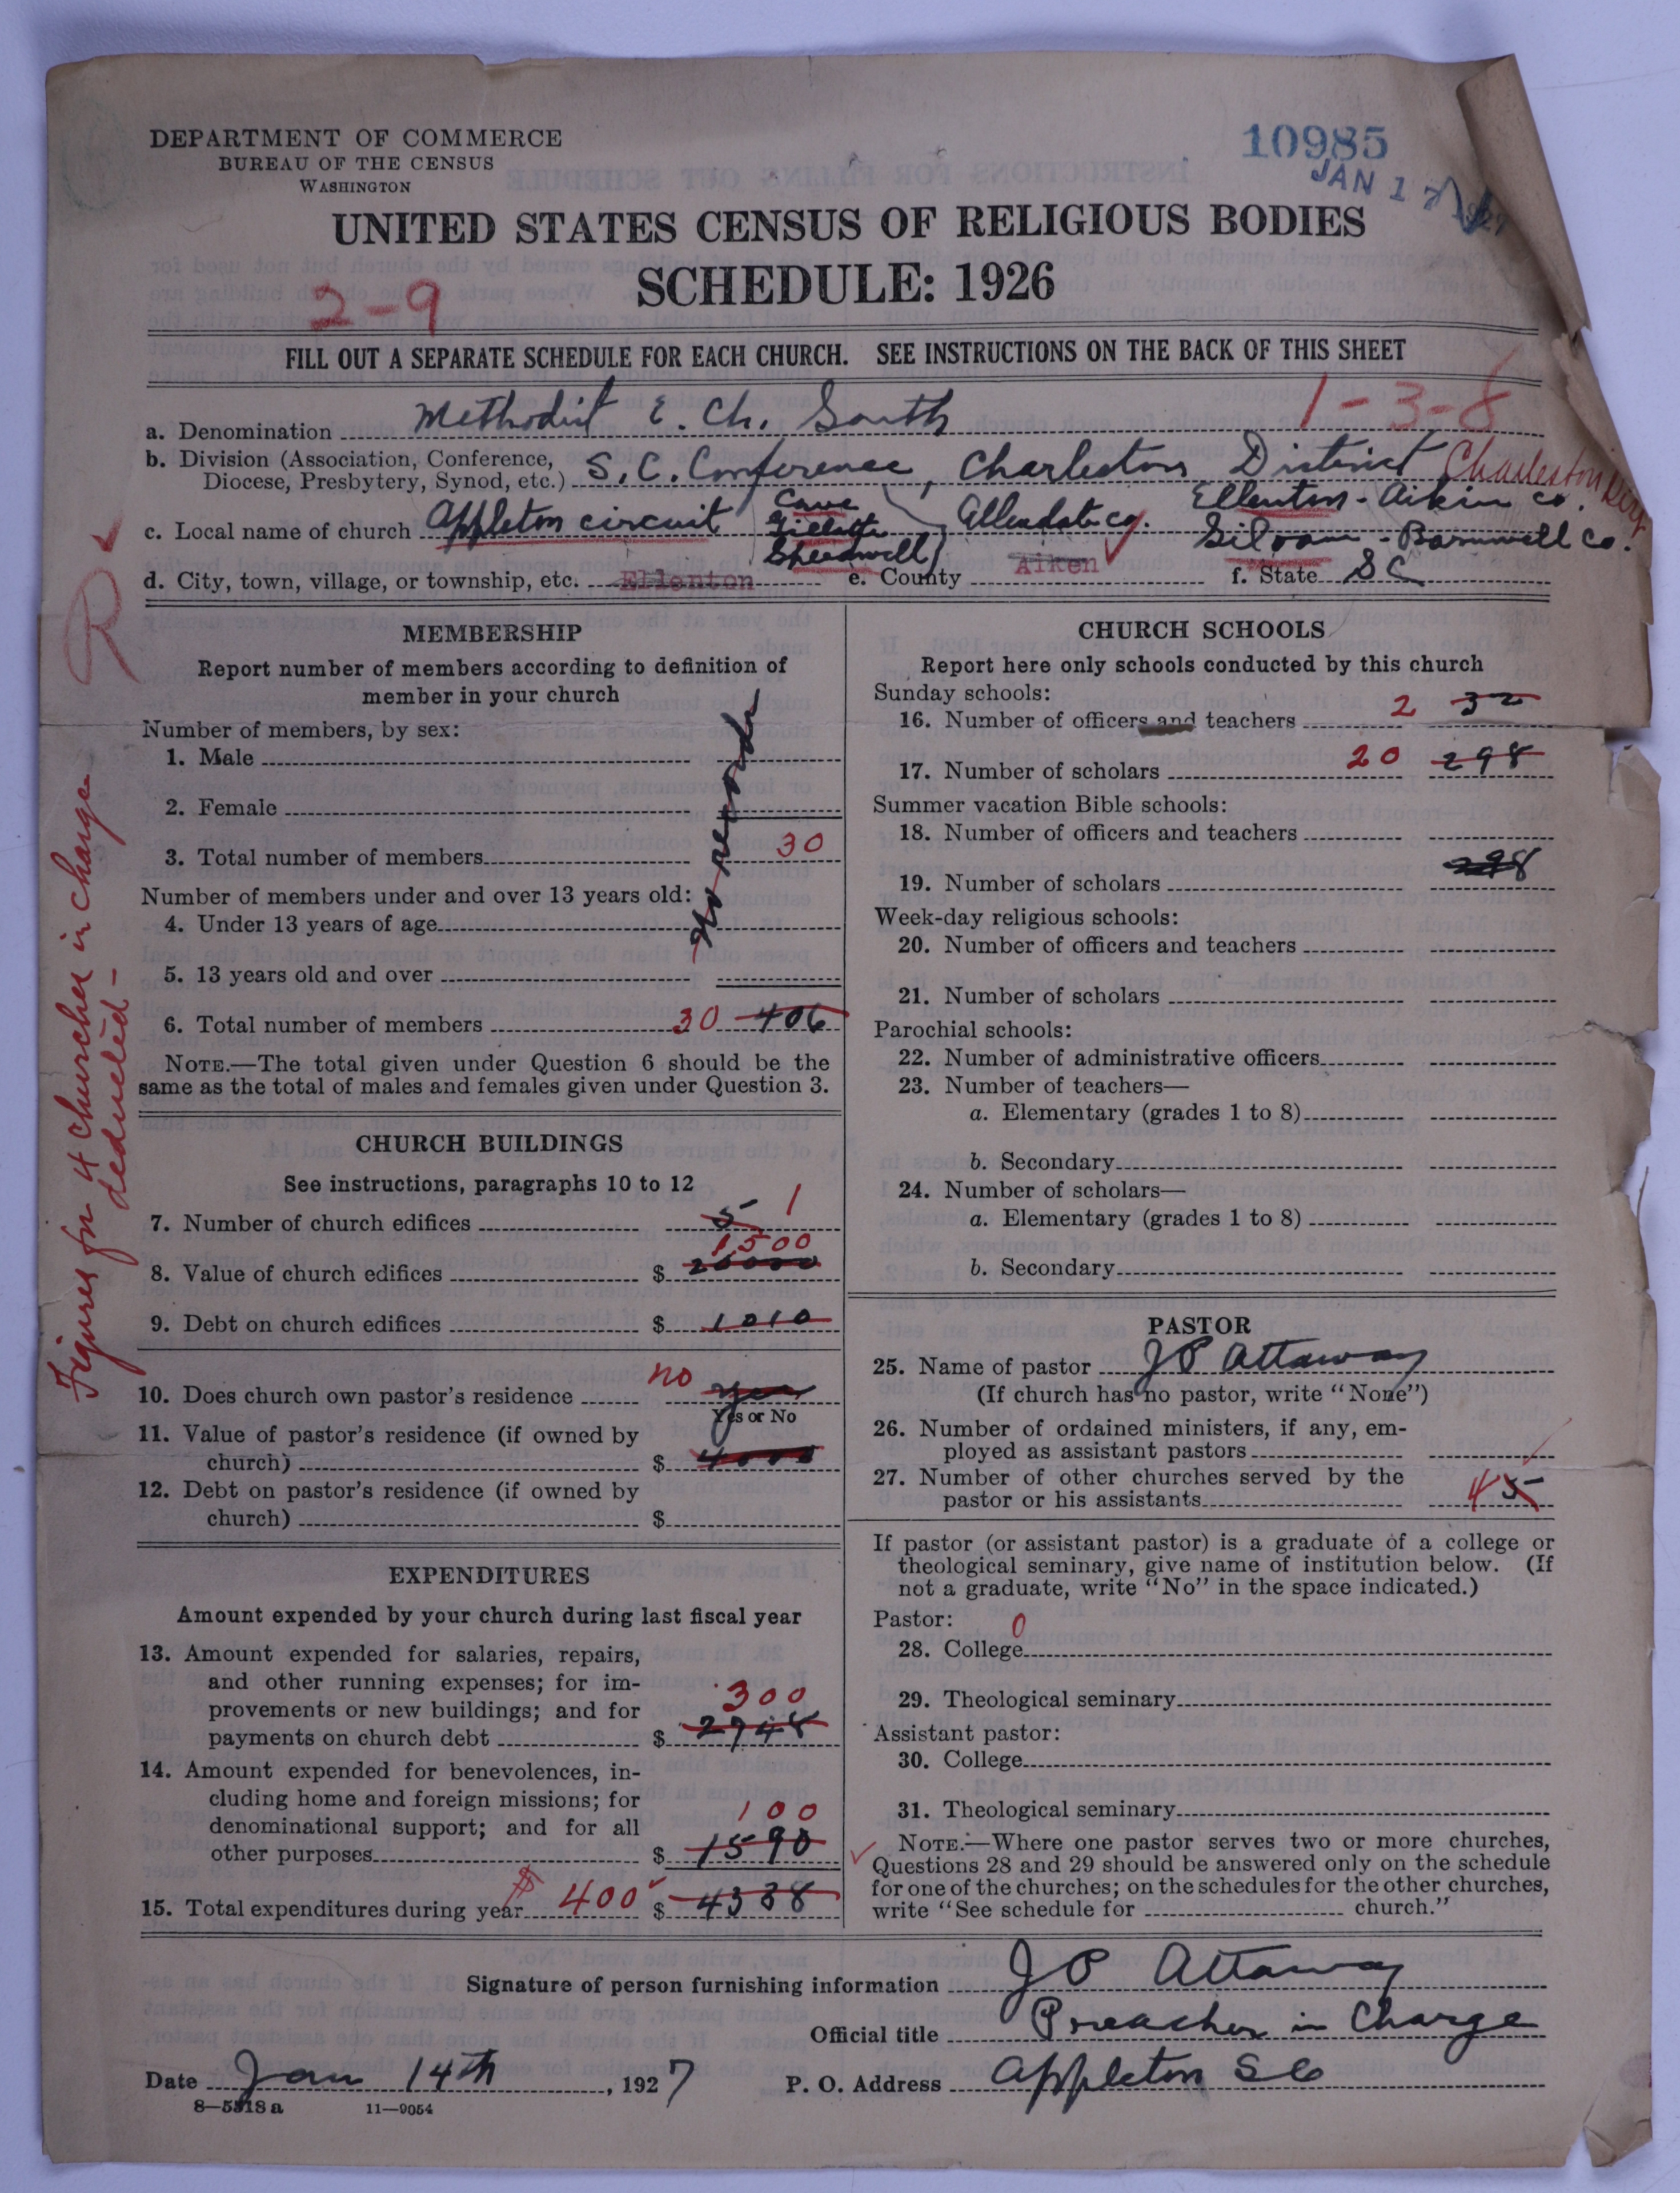 DEPARTMENT OF COMMERCE
BUREAU OF THE CENSUS
WASHINGTON
10985
JAN 17 1927
UNITED STATES CENSUS OF RELIGIOUS BODIES
SCHEDULE: 1926
2-9
FILL OUT A SEPARATE SCHEDULE FOR EACH CHURCH. SEE INSTRUCTIONS ON THE BACK OF THIS SHEET
1-3-8
a. Denomination Methodist E. Ch. South
b. Division (Association, Conference, Diocese, Presbytery, Synod, etc.) S.C. Conference, Charleston District Charleston
c. Local name of church Appleton circuit Cave Gillette Speedwell Allendale co. Ellenton - Aikin co. Siloam - Barnwell Co.
d. City, town, village, or township, etc. Ellenton e. County Aiken f. State S C
R
Figures for 4 churches in charge deducted -
MEMBERSHIP
Report number of members according to definition of
member in your church
Number of members, by sex:
1. Male
2. Female
3. Total number of members 30
Number of members under and over 13 years old:
4. Under 13 years of age
5. 13 years old and over
No records
6. Total number of members 30 406
NOTE.—The total given under Question 6 should be the
same as the total of males and females given under Question 3.
CHURCH BUILDINGS
See instructions, paragraphs 10 to 12
7. Number of church edifices 5 1
1500
8. Value of church edifices $ 20000
9. Debt on church edifices $ 1010
10. Does church own pastor's residence no yes
Yes or No
11. Value of pastor's residence (if owned by
church) $ 4000
12. Debt on pastor's residence (if owned by
church) $
EXPENDITURES
Amount expended by your church during last fiscal year
13. Amount expended for salaries, repairs,
and other running expenses; for im-
provements or new buildings; and for 300
payments on church debt $ 2748
14. Amount expended for benevolences, in-
cluding home and foreign missions; for
denominational support; and for all 100
other purposes $ 1590
15. Total expenditures during year $ 400 $ 4338
CHURCH SCHOOLS
Report here only schools conducted by this church
Sunday schools:
16. Number of officers and teachers 2 32
17. Number of scholars 20 298
Summer vacation Bible schools:
18. Number of officers and teachers
19. Number of scholars 298
Week-day religious schools:
20. Number of officers and teachers
21. Number of scholars
Parochial schools:
22. Number of administrative officers
23. Number of teachers—
a. Elementary (grades 1 to 8)
b. Secondary
24. Number of scholars—
a. Elementary (grades 1 to 8)
b. Secondary
PASTOR
25. Name of pastor J P Attaway
(If church has no pastor, write "None")
26. Number of ordained ministers, if any, em-
ployed as assistant pastors
27. Number of other churches served by the
pastor or his assistants 4 5
If pastor (or assistant pastor) is a graduate of a college or
theological seminary, give name of institution below. (If
not a graduate, write "No" in the space indicated.)
Pastor:
28. College 0
29. Theological seminary
Assistant pastor:
30. College
31. Theological seminary
NOTE.—Where one pastor serves two or more churches,
Questions 28 and 29 should be answered only on the schedule
for one of the churches; on the schedules for the other churches,
write "See schedule for church."
Signature of person furnishing information J P Attaway
Official title Preacher in Charge
Date Jan 14th, 1927 P. O. Address Appleton S C
8—5318 a 11—9054